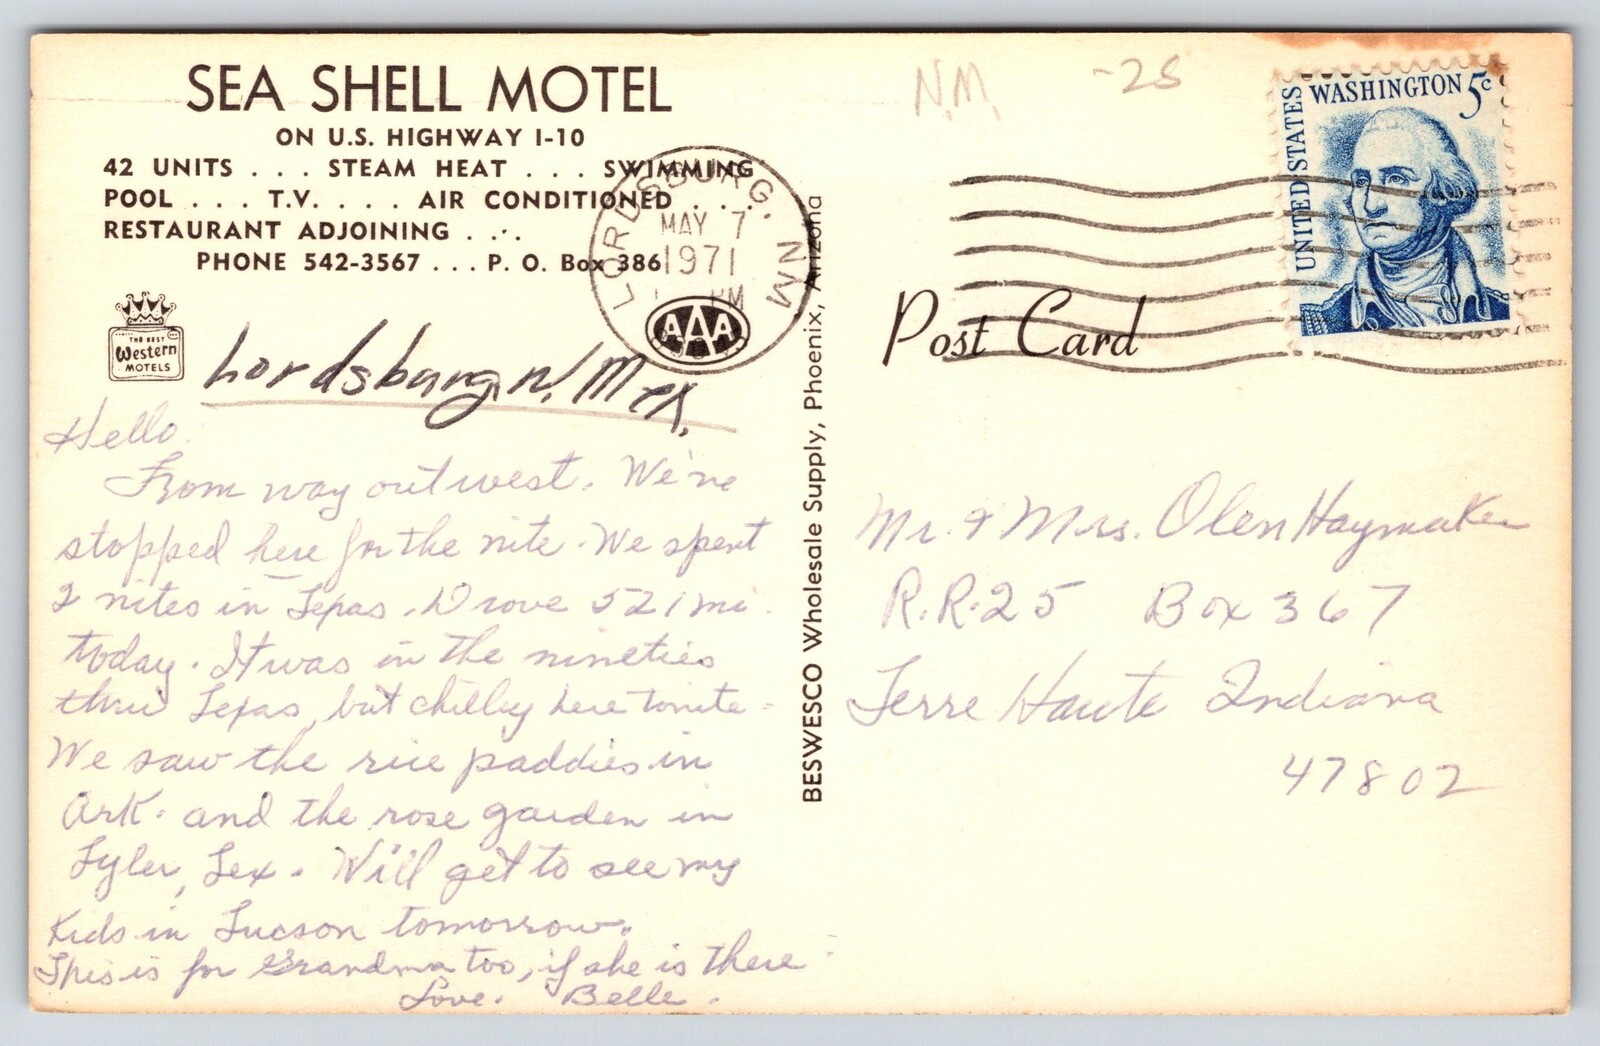 SEA SHELL MOTEL
ON U.S. HIGHWAY I-10
42 UNITS . . . STEAM HEAT . . . SWIMMING
POOL . . . T.V. . . . AIR CONDITIONED . . .
RESTAURANT ADJOINING . . .
PHONE 542-3567 . . . P. O. Box 386
THE BEST
Western
MOTELS
LORDSBURG, NM
MAY 7
1971
PM
AAA
Lordsburg, N. Mex.
Hello.
From way out west. We've
stopped here for the nite. We spent
2 nites in Texas. Drove 521 mi.
today. It was in the nineties
thru Texas, but chilly here tonite.
We saw the rice paddies in
Ark. and the rose garden in
Tyler, Tex. Will get to see my
Kids in Tucson tomorrow.
This is for Grandma too, if she is there
Love. Belle.
BESWESCO Wholesale Supply, Phoenix, Arizona
N.M. -25
UNITED STATES
WASHINGTON 5c
Post Card
Mr. & Mrs. Olen Haymaker
R.R. 25 Box 367
Terre Haute Indiana
47802